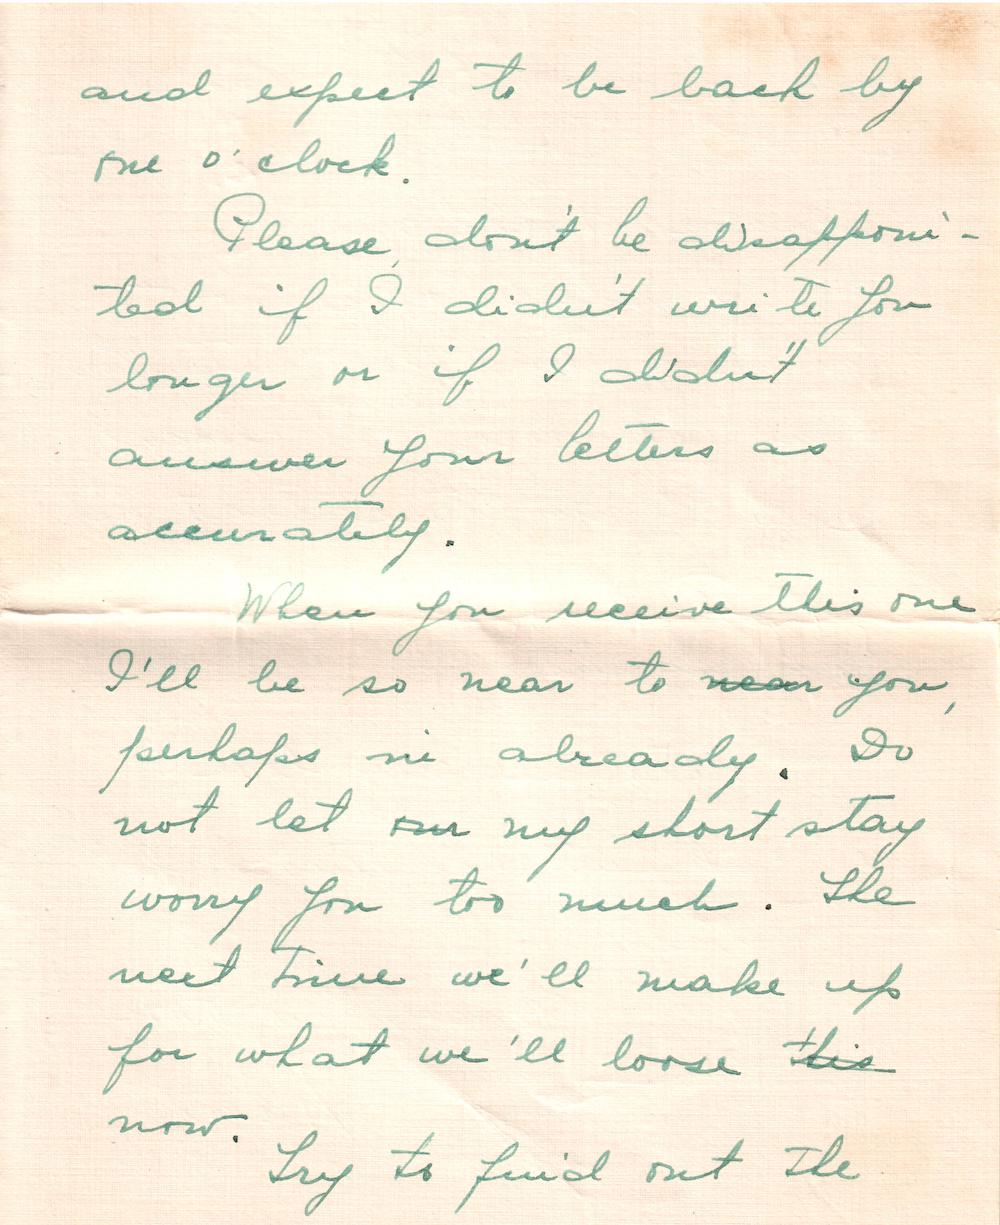 and expect to be back by
one o'clock.
Please, don't be disappoin-
ted if I didn't write you
longer or if I didn't
answer your letters as
accurately.
When you receive this one
I'll be so near to near you,
perhaps in already. Do
not let our my short stay
worry you too much. The
next time we'll make up
for what we'll loose this
now.
Try to find out the